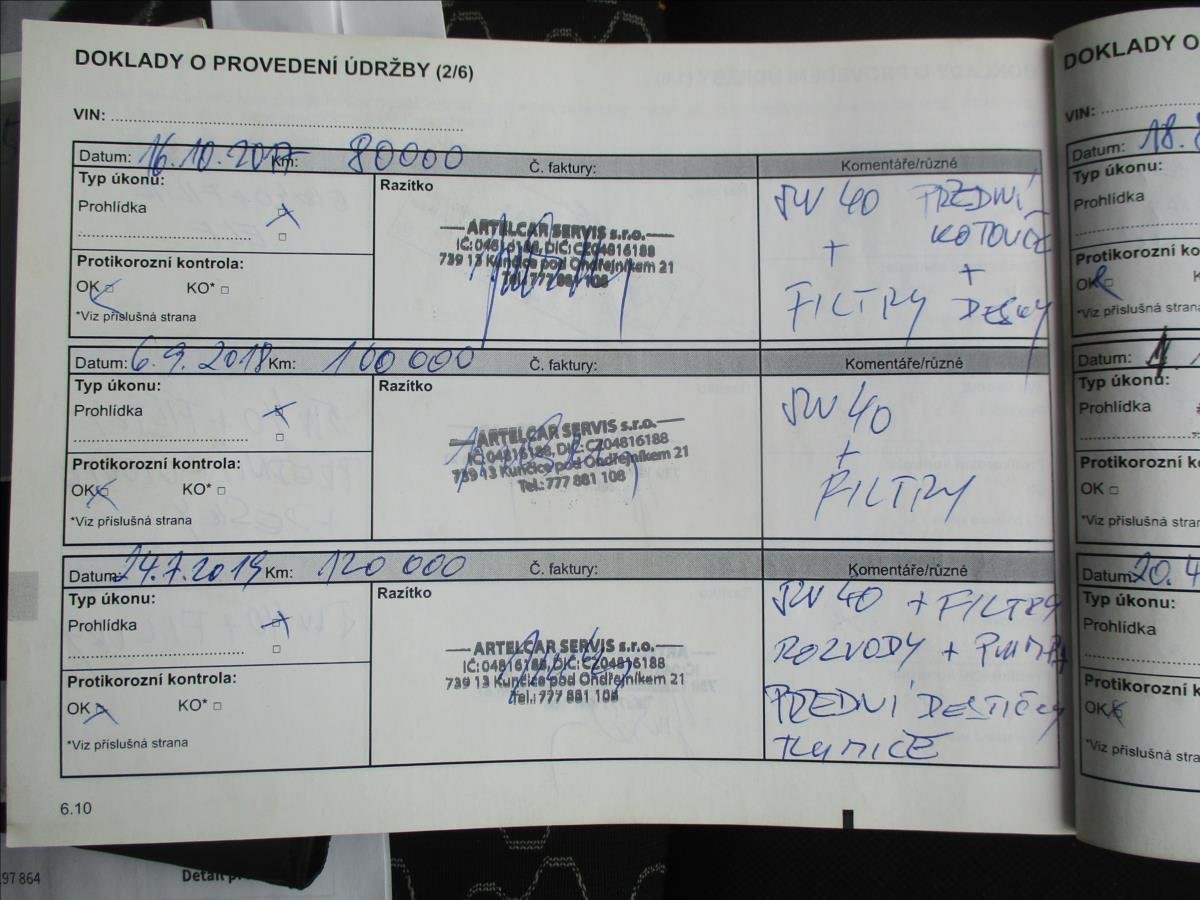 DOKLADY O PROVEDENÍ ÚDRŽBY (2/6)
VIN:
Datum: 16.10.2017 Km: 80000 Č. faktury: Komentáře/různé
Typ úkonu:
Prohlídka
Razítko
ARTELCAR SERVIS s.r.o.
IČ:04816188, DIČ:CZ04816188
739 13 Kunčice pod Ondřejníkem 21
Tel.:777 881 108
5W 40 PŘEDNÍ
KOTOUČE
+ +
FILTRY DESKY
Protikorozní kontrola:
OK KO*
*Viz příslušná strana
Datum: 6.9.2018 Km: 100 000 Č. faktury: Komentáře/různé
Typ úkonu:
Prohlídka
Razítko
ARTELCAR SERVIS s.r.o.
IČ:04816188, DIČ:CZ04816188
739 13 Kunčice pod Ondřejníkem 21
Tel.:777 881 108
5W 40
+
FILTRY
Protikorozní kontrola:
OK KO*
*Viz příslušná strana
Datum: 24.7.2019 Km: 120 000 Č. faktury: Komentáře/různé
Typ úkonu:
Prohlídka
Razítko
ARTELCAR SERVIS s.r.o.
IČ:04816188, DIČ:CZ04816188
739 13 Kunčice pod Ondřejníkem 21
Tel.:777 881 108
5W 40 + FILTRY
ROZVODY + PUMPA
PŘEDNÍ DESTIČKY
Protikorozní kontrola:
OK KO*
*Viz příslušná strana
6.10
DOKLADY O
VIN:
Datum: 18.
Typ úkonu:
Prohlídka
Protikorozní
OK
*Viz příslušná
Datum:
Typ úkonu:
Prohlídka
Protikorozní
OK
*Viz příslušná
Datum: 20.4
Typ úkonu:
Prohlídka
Protikorozní
OK
*Viz příslušná
97 864
Detail